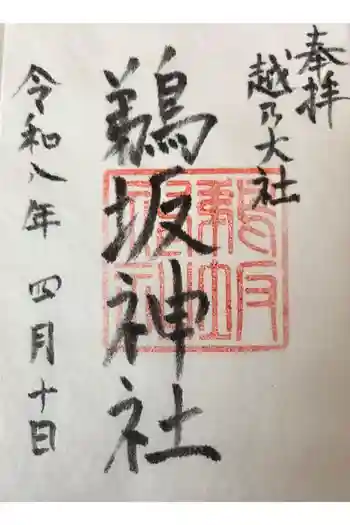 奉拝
越乃大社
鵜坂神社
令和八年 四月十日